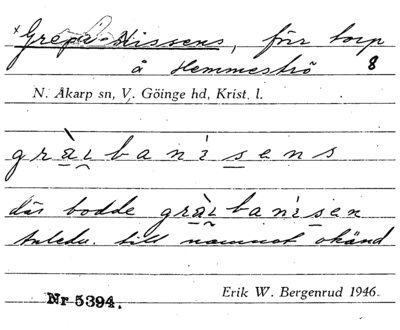 Grepa-Nissens, förr torp
å Hemmeströ 8
N. Åkarp sn, V. Göinge hd, Krist. l.
gràibanìsens
där bodde gràibanìsen
Anledn. till namnet okänd
Nr 5394. Erik W. Bergenrud 1946.